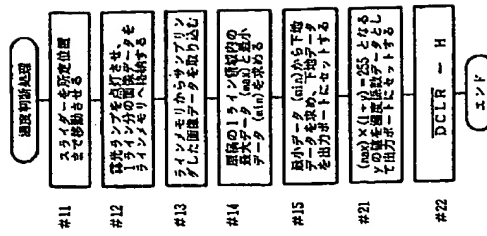 濃度判断処理
#11
スライダーを所定位置
まで移動させる
#12
露光ランプを点灯させ、
1ライン分の画像データを
ラインメモリへ格納する
#13
ラインメモリからサンプリン
グした画像データを取り込む
#14
原稿の1ライン領域内の
最大データ(max)と最小
データ(min)を求める
#15
最小データ(min)から下地
データを求め、下地データ
を出力ポートにセットする
#21
(max)×(1+y)=255 となる
yの値を濃度係数データとし
て出力ポートにセットする
#22
DCLR ─ H
エンド